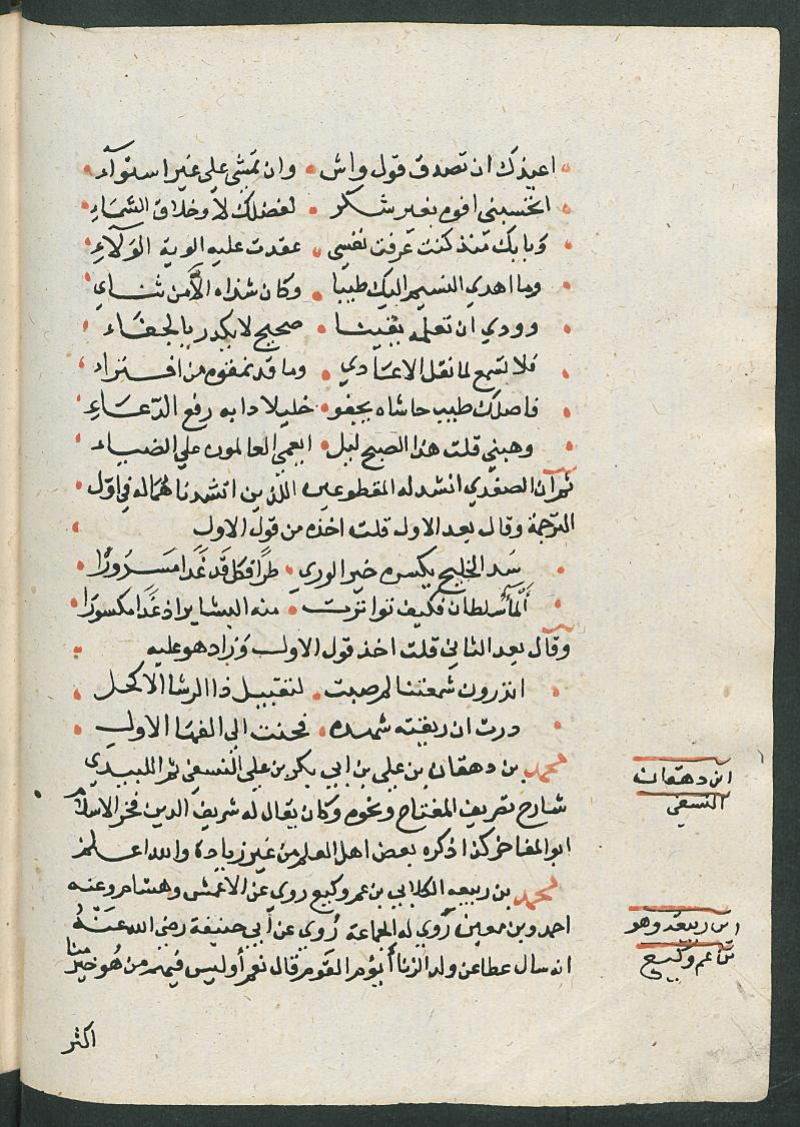 اعيذك ان تصدق قول واش • وان تمشي علي غير استوآء
اتحسبني افوه بغير شكر • لفضلك لا وخلاق السّماءِ
وبابك منذ كنت عرفت نفسي • عقدت عليه الوية الولآءِ
وما اهدي النسيم اليك طيبا • وكان شذاه الّا من ثناي
وودي ان تعلمه يقينا • صحيح لا يكدر بالجفاء
فلا تسمع لما نقل الاعادي • وما قد نمقوه من افتراء
فاصلك طيب حاشاه يجفو • خليلا دابه رفع الدّعاءِ
وهبني قلت هذا الصبح ليل • ايعمي العالمون علي الضياء
ثم ان الصفدي انشد له المقطوعين اللذين انشدناهما له في اوّل
الترجمة وقال بعد الاول قلت اخذه من قول الاول
سَد الخليج بكسره خير الوري • طرا فكل قد غَدا مسَرورًا
المآ سلطان فكيف تواترت • منه البشاير اذ غَدا مكسورًا
وقال بعد الثاني قلت اخذ قول الاول وَزاد هو عليه
اتدرون شمعتنا لم صبت • لتقبيل ذا الرشا الاكحل
درت ان ريقته شهده • فحنت الي الفها الاول
محمد بن دهقان بن علي بن ابي بكر بن علي النسفي ثم اللبيدي
شارح تصريف المفتاح ونحوه وكان يقال له شريف الدين فخر الاسلام
ابو المفاخر كذا ذكره بعض اهل العلم من غير زيادة والله اعلم
محمد بن ربيعه الكلابي بن عم وكيع روي عن الاعمش وهشام وعنه
احمد وبن معين رُوي له الجماعة رُوي عن أبي حنيفة رضي الله عَنْهُ
انه سال عطا عن ولد الزنا أيؤم القوم قال نعم أوليس فيهم من هُو خير منا
اكثر
ابن دهقان
النسفي
ابن ربيعة وهو
بن عم وكيع